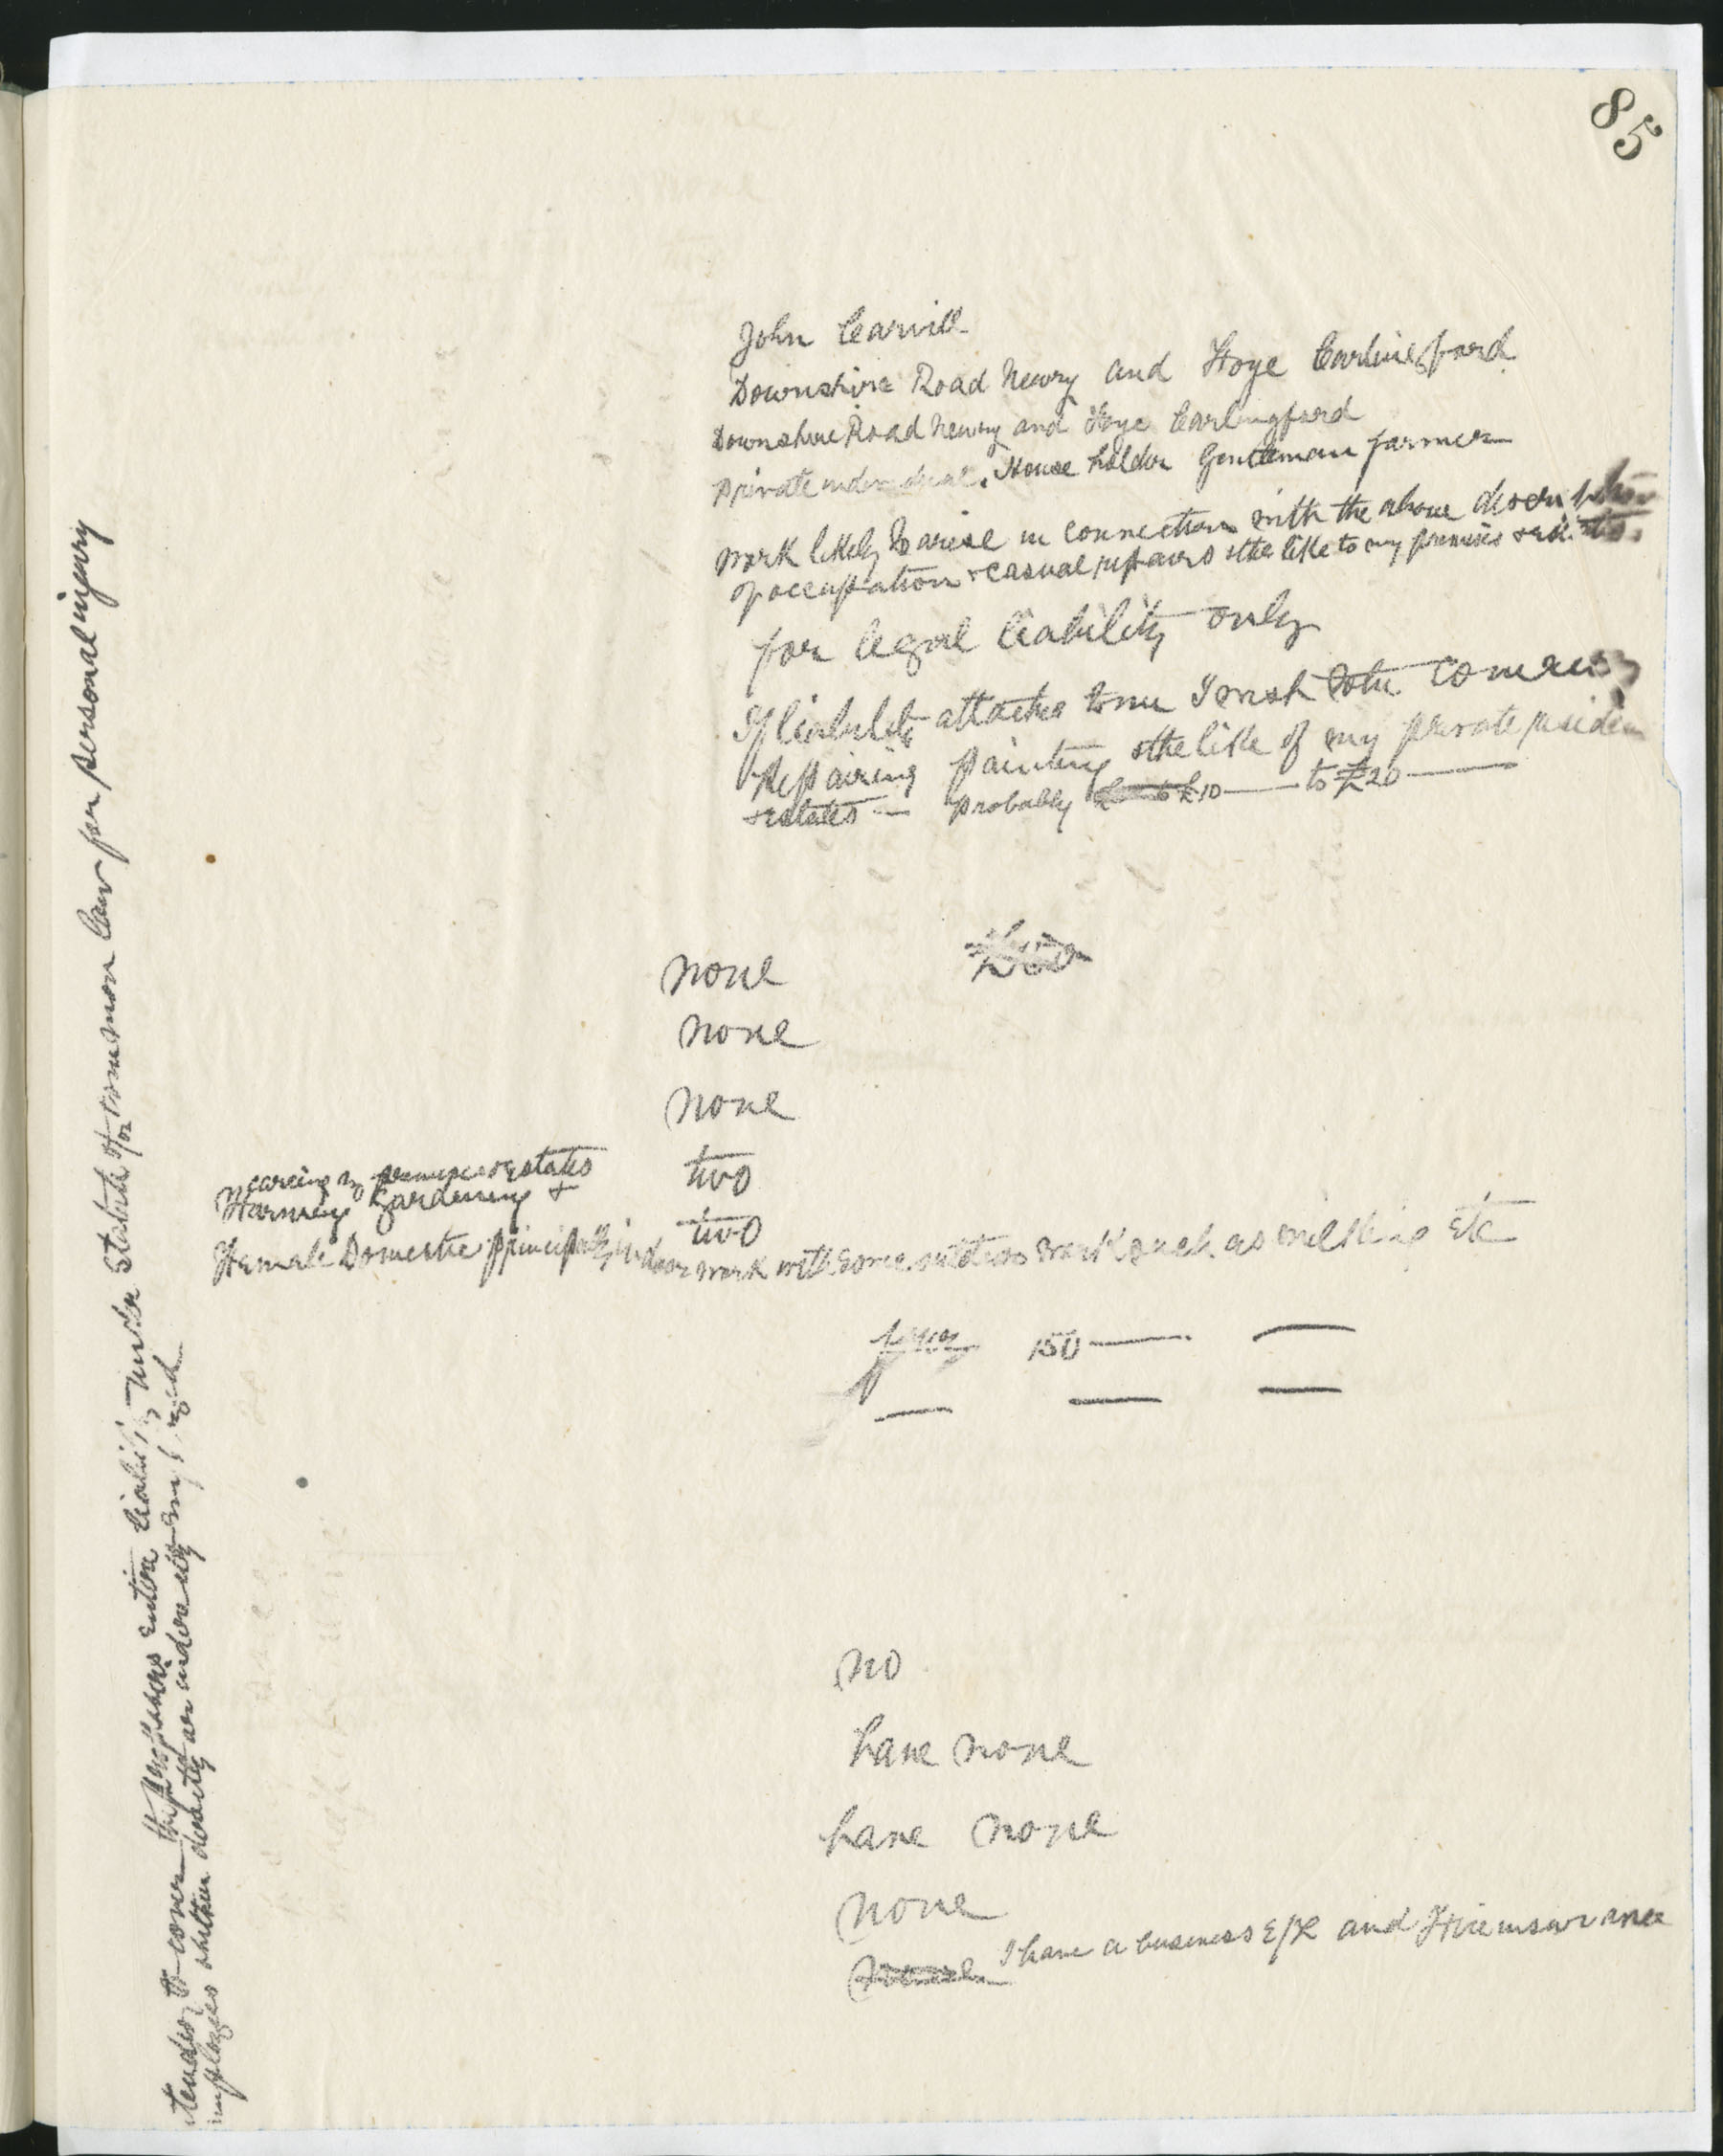 85
John Carvill
Downshire Road Newry and Foye Carlingford
Downshire Road Newry and Foye Carlingford
private individual. House holder Gentleman farmer
work likely to arise in connection with the above description
of occupation & casual repairs & the like to my premises & estates.
for legal liability only
If liability attaches to me I wish to be
Repairing painting & the like of my private residence
& estates — probably £10 — to £20 —
none
none
none
caring my premises & estates two
Farming Gardening &
two
Female Domestic principally indoor work with some outdoor work such as milking Etc
150 — —
— — —
no
have none
have none
none
I have a business E/L and Fire insurance
tended to cover the proposers entire liability under Statute or common law for personal injury
employees whether directly or indirectly